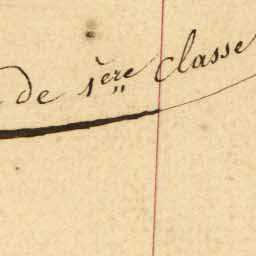 de 1ère classe